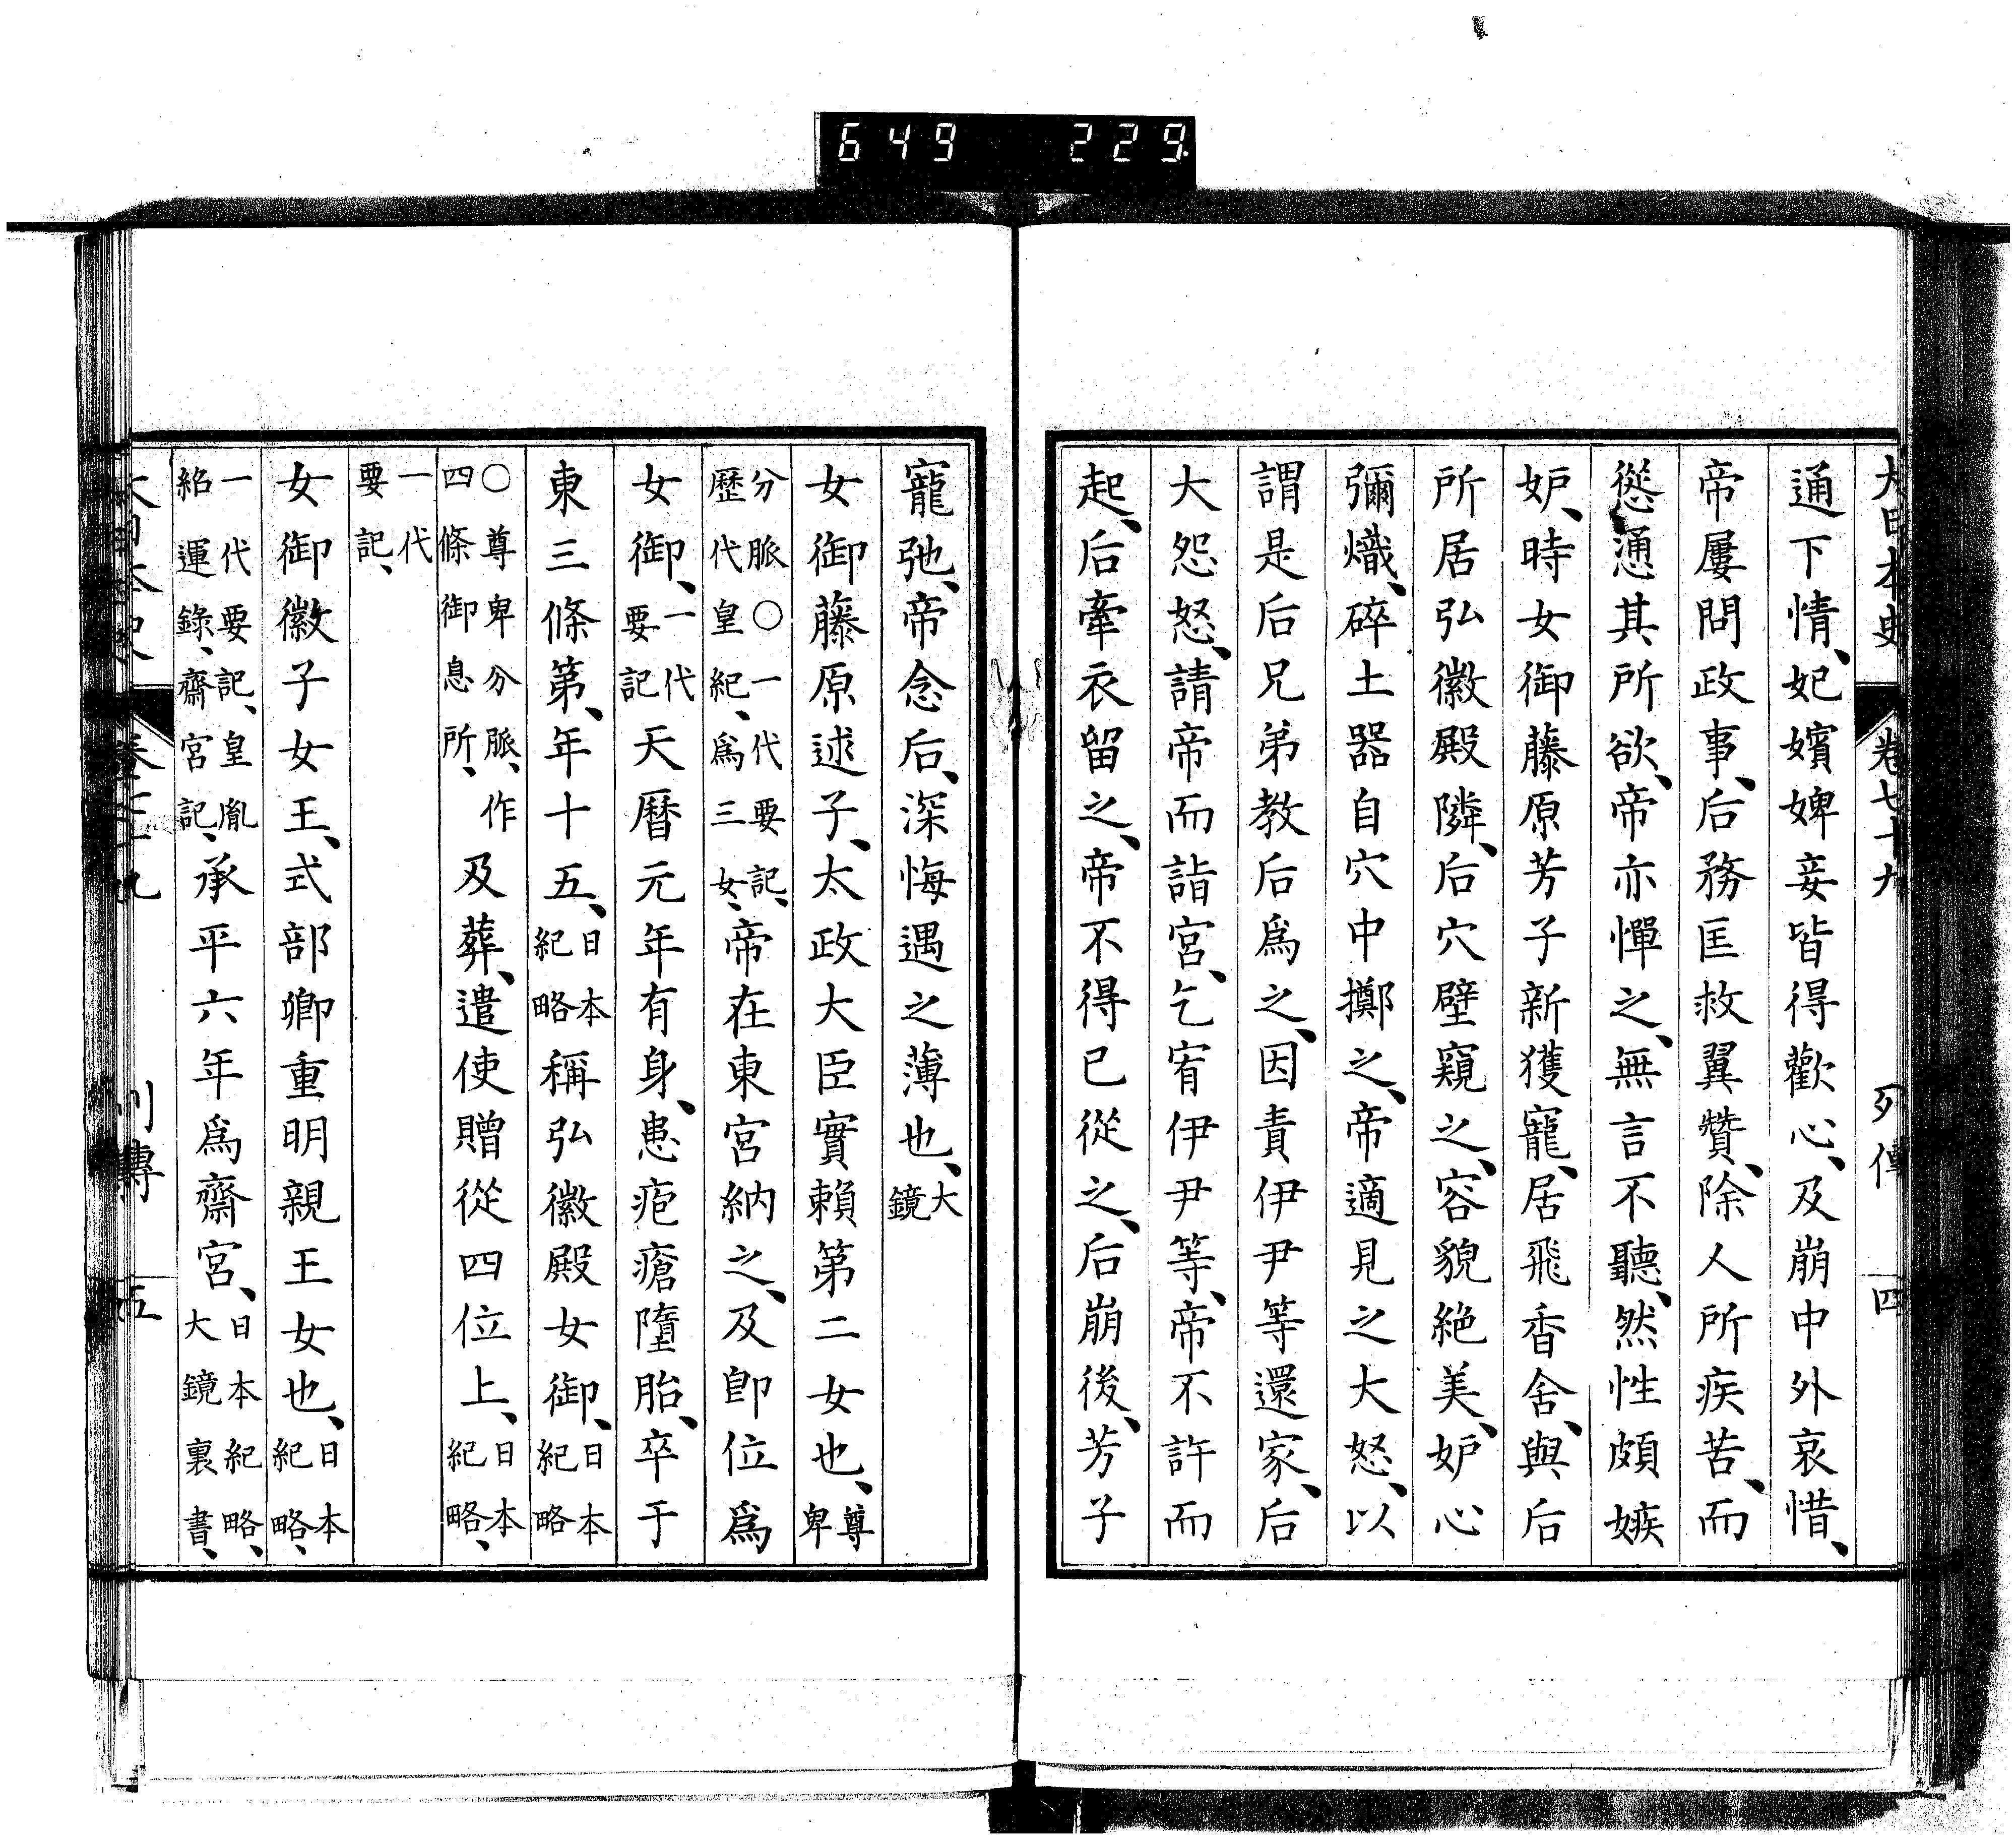 649 229
大日本史 卷七十九 列傳 四
通下情、妃嬪婢妾皆得歡心、及崩中外哀惜、
帝屢問政事、后務匡救翼贊、除人所疾苦、而
慫慂其所欲、帝亦憚之、無言不聽、然性頗嫉
妒、時女御藤原芳子新獲寵、居飛香舍、與后
所居弘徽殿隣、后穴壁窺之、容貌絶美、妒心
彌熾、碎土器自穴中擲之、帝適見之大怒、以
謂是后兄弟教后爲之、因責伊尹等還家、后
大怨怒、請帝而詣宮、乞宥伊尹等、帝不許而
起、后牽衣留之、帝不得已從之、后崩後、芳子
寵弛、帝念后、深悔遇之薄也、大鏡
女御藤原述子、太政大臣實賴第二女也、尊卑
分脈○一代要記、歷代皇紀、爲三女、帝在東宮納之、及卽位爲
女御、一代要記天曆元年有身、患疱瘡墮胎、卒于
東三條第、年十五、日本紀略稱弘徽殿女御、日本紀略
○尊卑分脈、作四條御息所、及葬、遣使贈從四位上、日本紀略、
一代要記、
女御徽子女王、式部卿重明親王女也、日本紀略、
一代要記、皇胤紹運錄、齋宮記、承平六年爲齋宮、日本紀略、大鏡裏書、
列傳 五